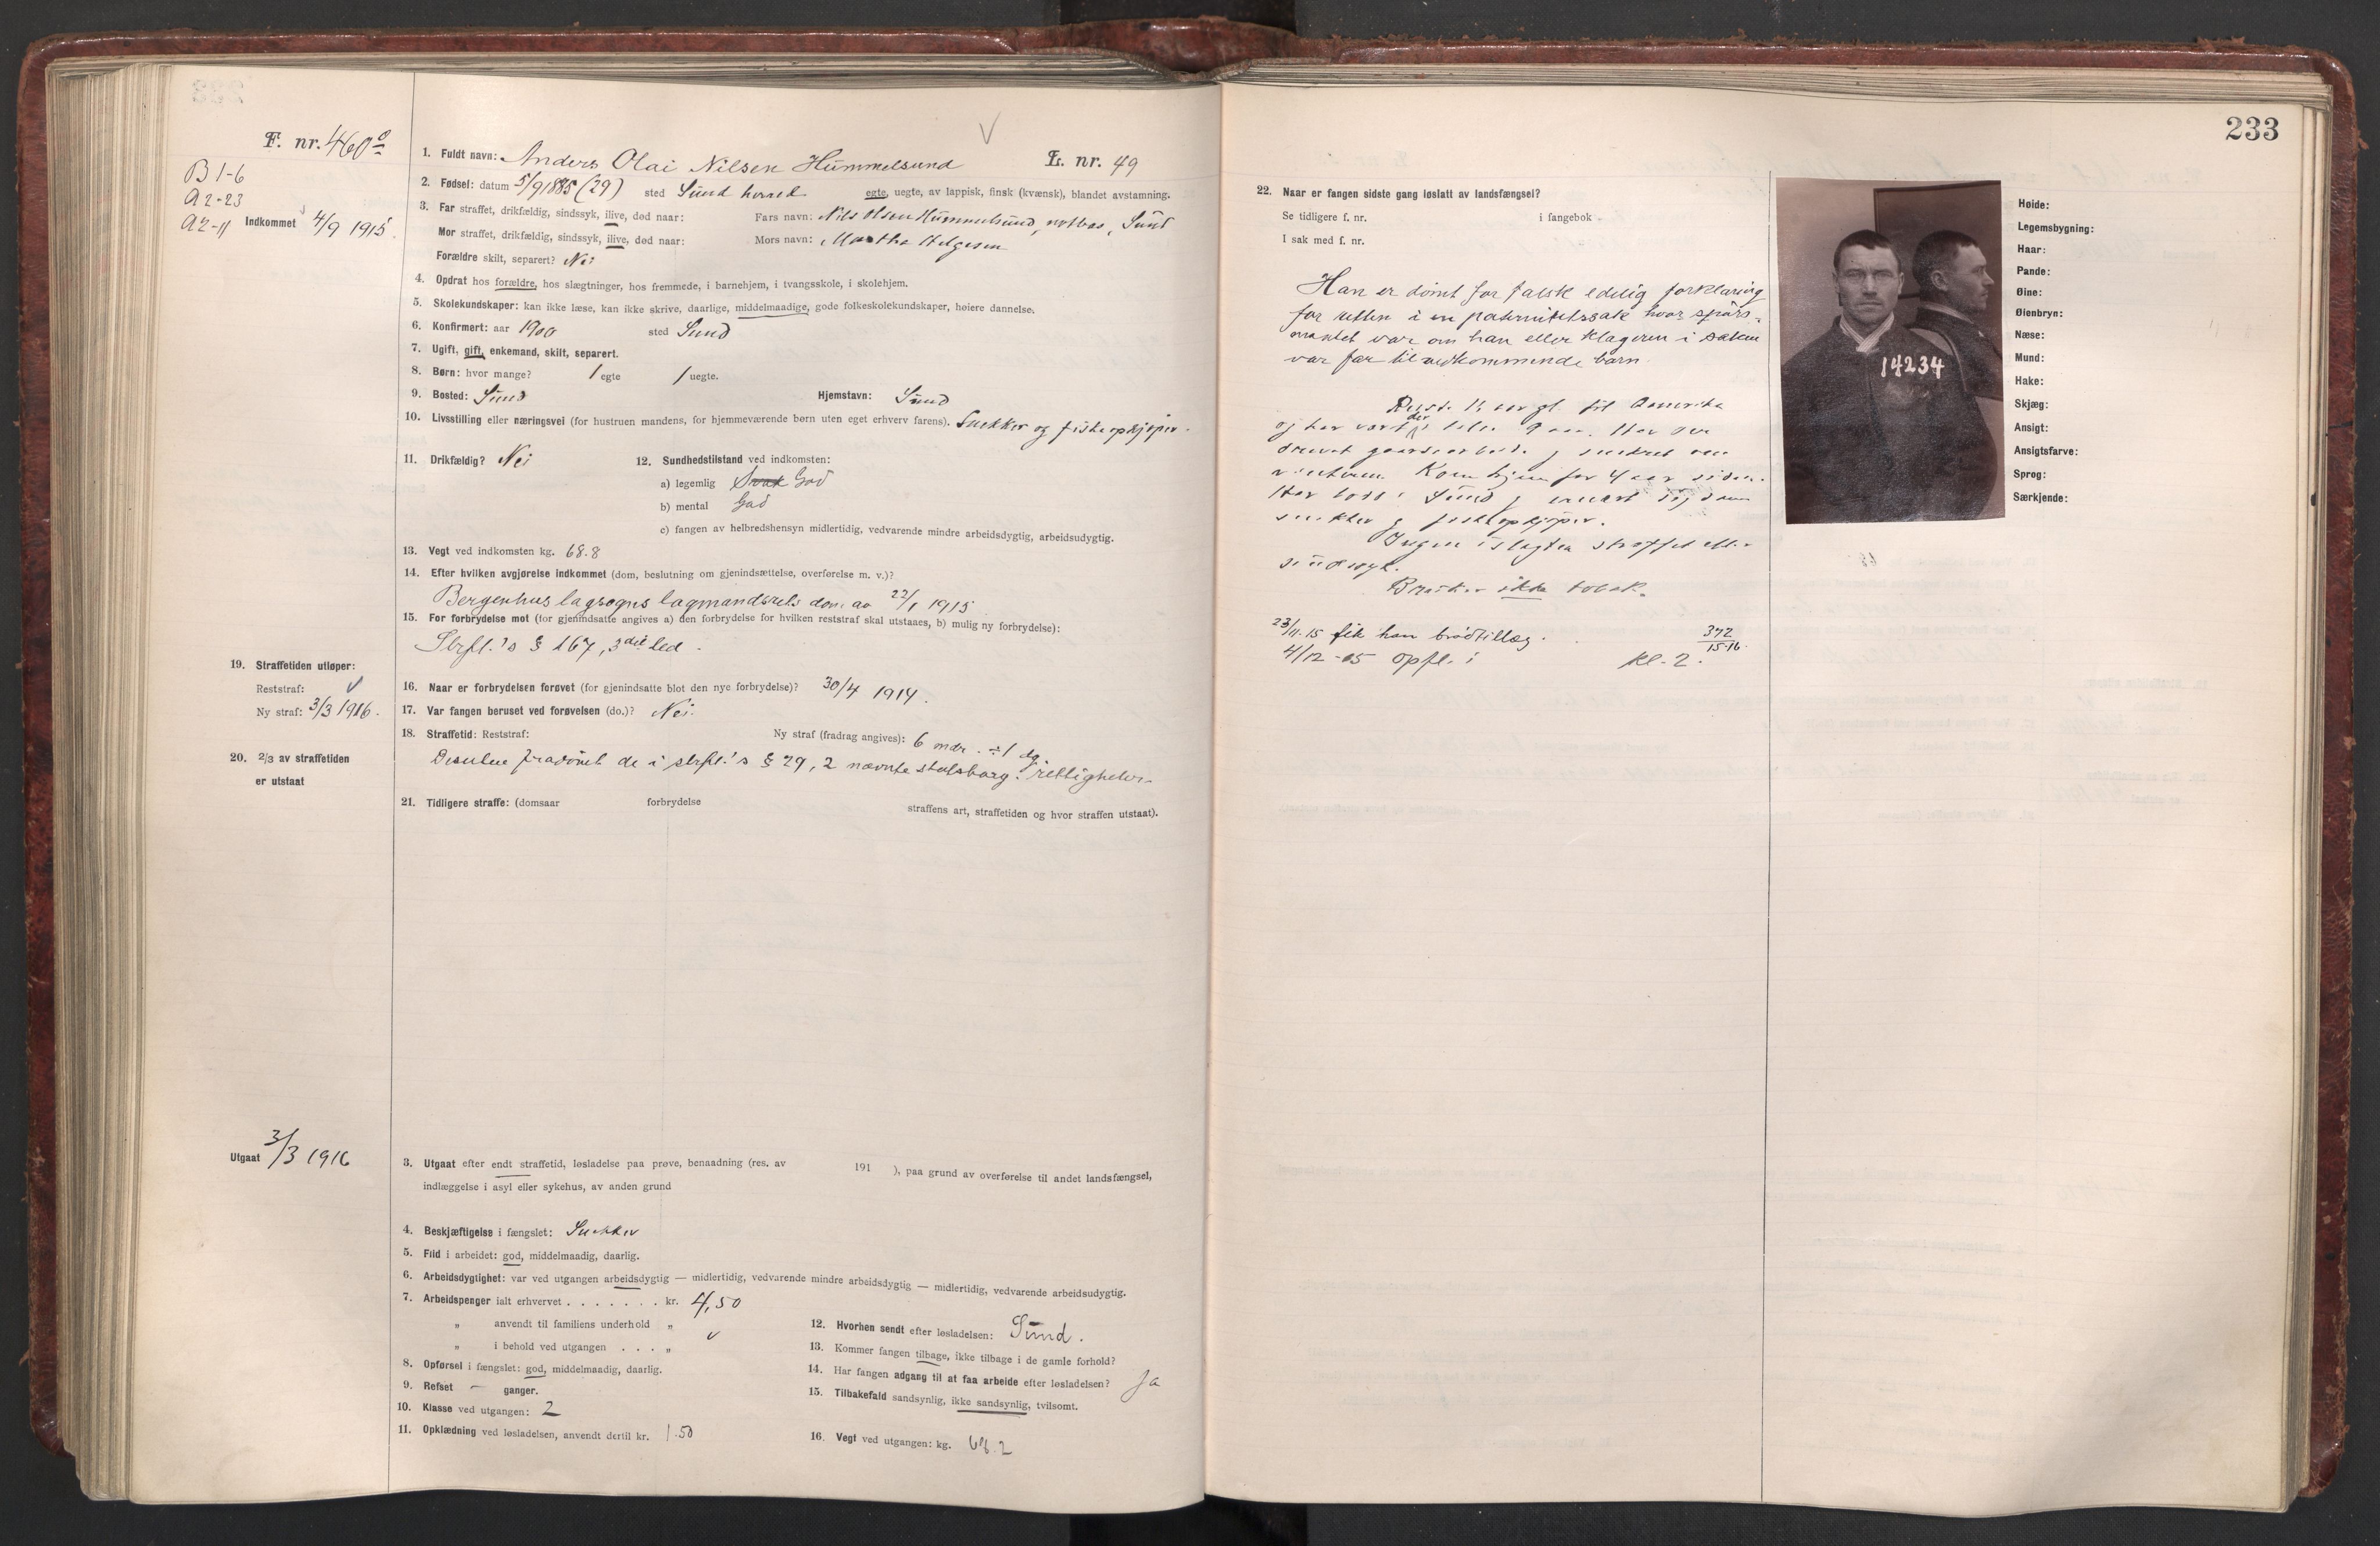 233
F. nr. 460
B 1-6
A2-23
A2-11
Indkommet 4/9 1915.
1. Fuldt navn: Anders Olai Nilsen Hummelsund L. nr. 49
2. Fødsel: datum 5/9 1885 (29) sted Sund herred egte, uegte, av lappisk, finsk (kvænsk), blandet avstamning.
3. Far straffet, drikfældig, sindssyk, ilive, død naar: Fars navn: Nils Olsen Hummelsund, notbas, Sund
Mor straffet, drikfældig, sindssyk, ilive, død naar: Mors navn: Martha Helgesen
Forældre skilt, separert? Nei
4. Opdrat hos forældre, hos slægtninger, hos fremmede, i barnehjem, i tvangsskole, i skolehjem.
5. Skolekundskaper: kan ikke læse, kan ikke skrive, daarlige, middelmaadige, gode folkeskolekundskaper, høiere dannelse.
6. Konfirmert: aar 1900 sted Sund
7. Ugift, gift, enkemand, skilt, separert.
8. Børn: hvor mange? 1 egte 1 uegte.
9. Bosted: Sund Hjemstavn: Sund
10. Livsstilling eller næringsvei (for hustruen mandens, for hjemmeværende børn uten eget erhverv farens). Snekker og fiskeopkjøper.
11. Drikfældig? Nei 12. Sundhedstilstand ved indkomsten:
a) legemlig Svak God
b) mental God
c) fangen av helbredshensyn midlertidig, vedvarende mindre arbeidsdygtig, arbeidsudygtig.
13. Vegt ved indkomsten kg. 68.8
14. Efter hvilken avgjørelse indkommet (dom, beslutning om gjenindsættelse, overførelse m. v.)?
Bergenhus lagsogns lagmandsrets dom av 22/1 1915
15. For forbrydelse mot (for gjenindsatte angives a) den forbrydelse for hvilken reststraf skal utstaaes, b) mulig ny forbrydelse):
Strfl.'s § 167, 3die led.
19. Straffetiden utløper:
Reststraf:
Ny straf: 3/3 1916.
16. Naar er forbrydelsen forøvet (for gjenindsatte blot den nye forbrydelse)? 30/4 1914.
17. Var fangen beruset ved forøvelsen (do.)? Nei.
18. Straffetid: Reststraf: Ny straf (fradrag angives): 6 mdr. ÷ 1 dg.
Desuten fradømt de i strfl.'s § 29, 2 nævnte statsborg. rettigheter
20. 2/3 av straffetiden
er utstaat
21. Tidligere straffe: (domsaar forbrydelse straffens art, straffetiden og hvor straffen utstaat).
Utgaat 3/3 1916
3. Utgaat efter endt straffetid, løsladelse paa prøve, benaadning (res. av 191 ), paa grund av overførelse til andet landsfængsel,
indlæggelse i asyl eller sykehus, av anden grund
4. Beskjæftigelse i fængslet: Snekker
5. Flid i arbeidet: god, middelmaadig, daarlig.
6. Arbeidsdygtighet: var ved utgangen arbeidsdygtig — midlertidig, vedvarende mindre arbeidsdygtig — midlertidig, vedvarende arbeidsudygtig.
7. Arbeidspenger ialt erhvervet . . . . . . . kr. 4,50
„ anvendt til familiens underhold „
„ i behold ved utgangen . . . „
8. Opførsel i fængslet: god, middelmaadig, daarlig.
9. Refset – ganger.
10. Klasse ved utgangen: 2
11. Opklædning ved løsladelsen, anvendt dertil kr. 1.50
12. Hvorhen sendt efter løsladelsen: Sund.
13. Kommer fangen tilbage, ikke tilbage i de gamle forhold?
14. Har fangen adgang til at faa arbeide efter løsladelsen? Ja
15. Tilbakefald sandsynlig, ikke sandsynlig, tvilsomt.
16. Vegt ved utgangen: kg. 68.2
22. Naar er fangen sidste gang løslatt av landsfængsel?
Se tidligere f. nr. i fangebok
I sak med f. nr.
Han er dømt for falsk edelig forklaring
for retten i en paternitetssak hvor spørs-
maalet var om han eller klageren i saken
var far til vedkommende barn.
Reiste 1 aar gl. til Amerika
og har vært der i 9 aar. Har der
drevet gaarsarbeide og snekret om
vinteren. Kom hjem for 4 aar siden.
Har bodd i Sund og ernært sig som
snekker og fiskeopkjøper.
Ingen i slegten straffet eller
sindssyk.
Bruker ikke tobak.
23/11.15 fik han brødtillæg. 372/15-16
4/12-15 opfl. i kl. 2.
14234
Høide:
Legemsbygning:
Haar:
Pande:
Øine:
Øienbryn:
Næse:
Mund:
Hake:
Skjæg:
Ansigt:
Ansigtsfarve:
Sprog:
Særkjende: